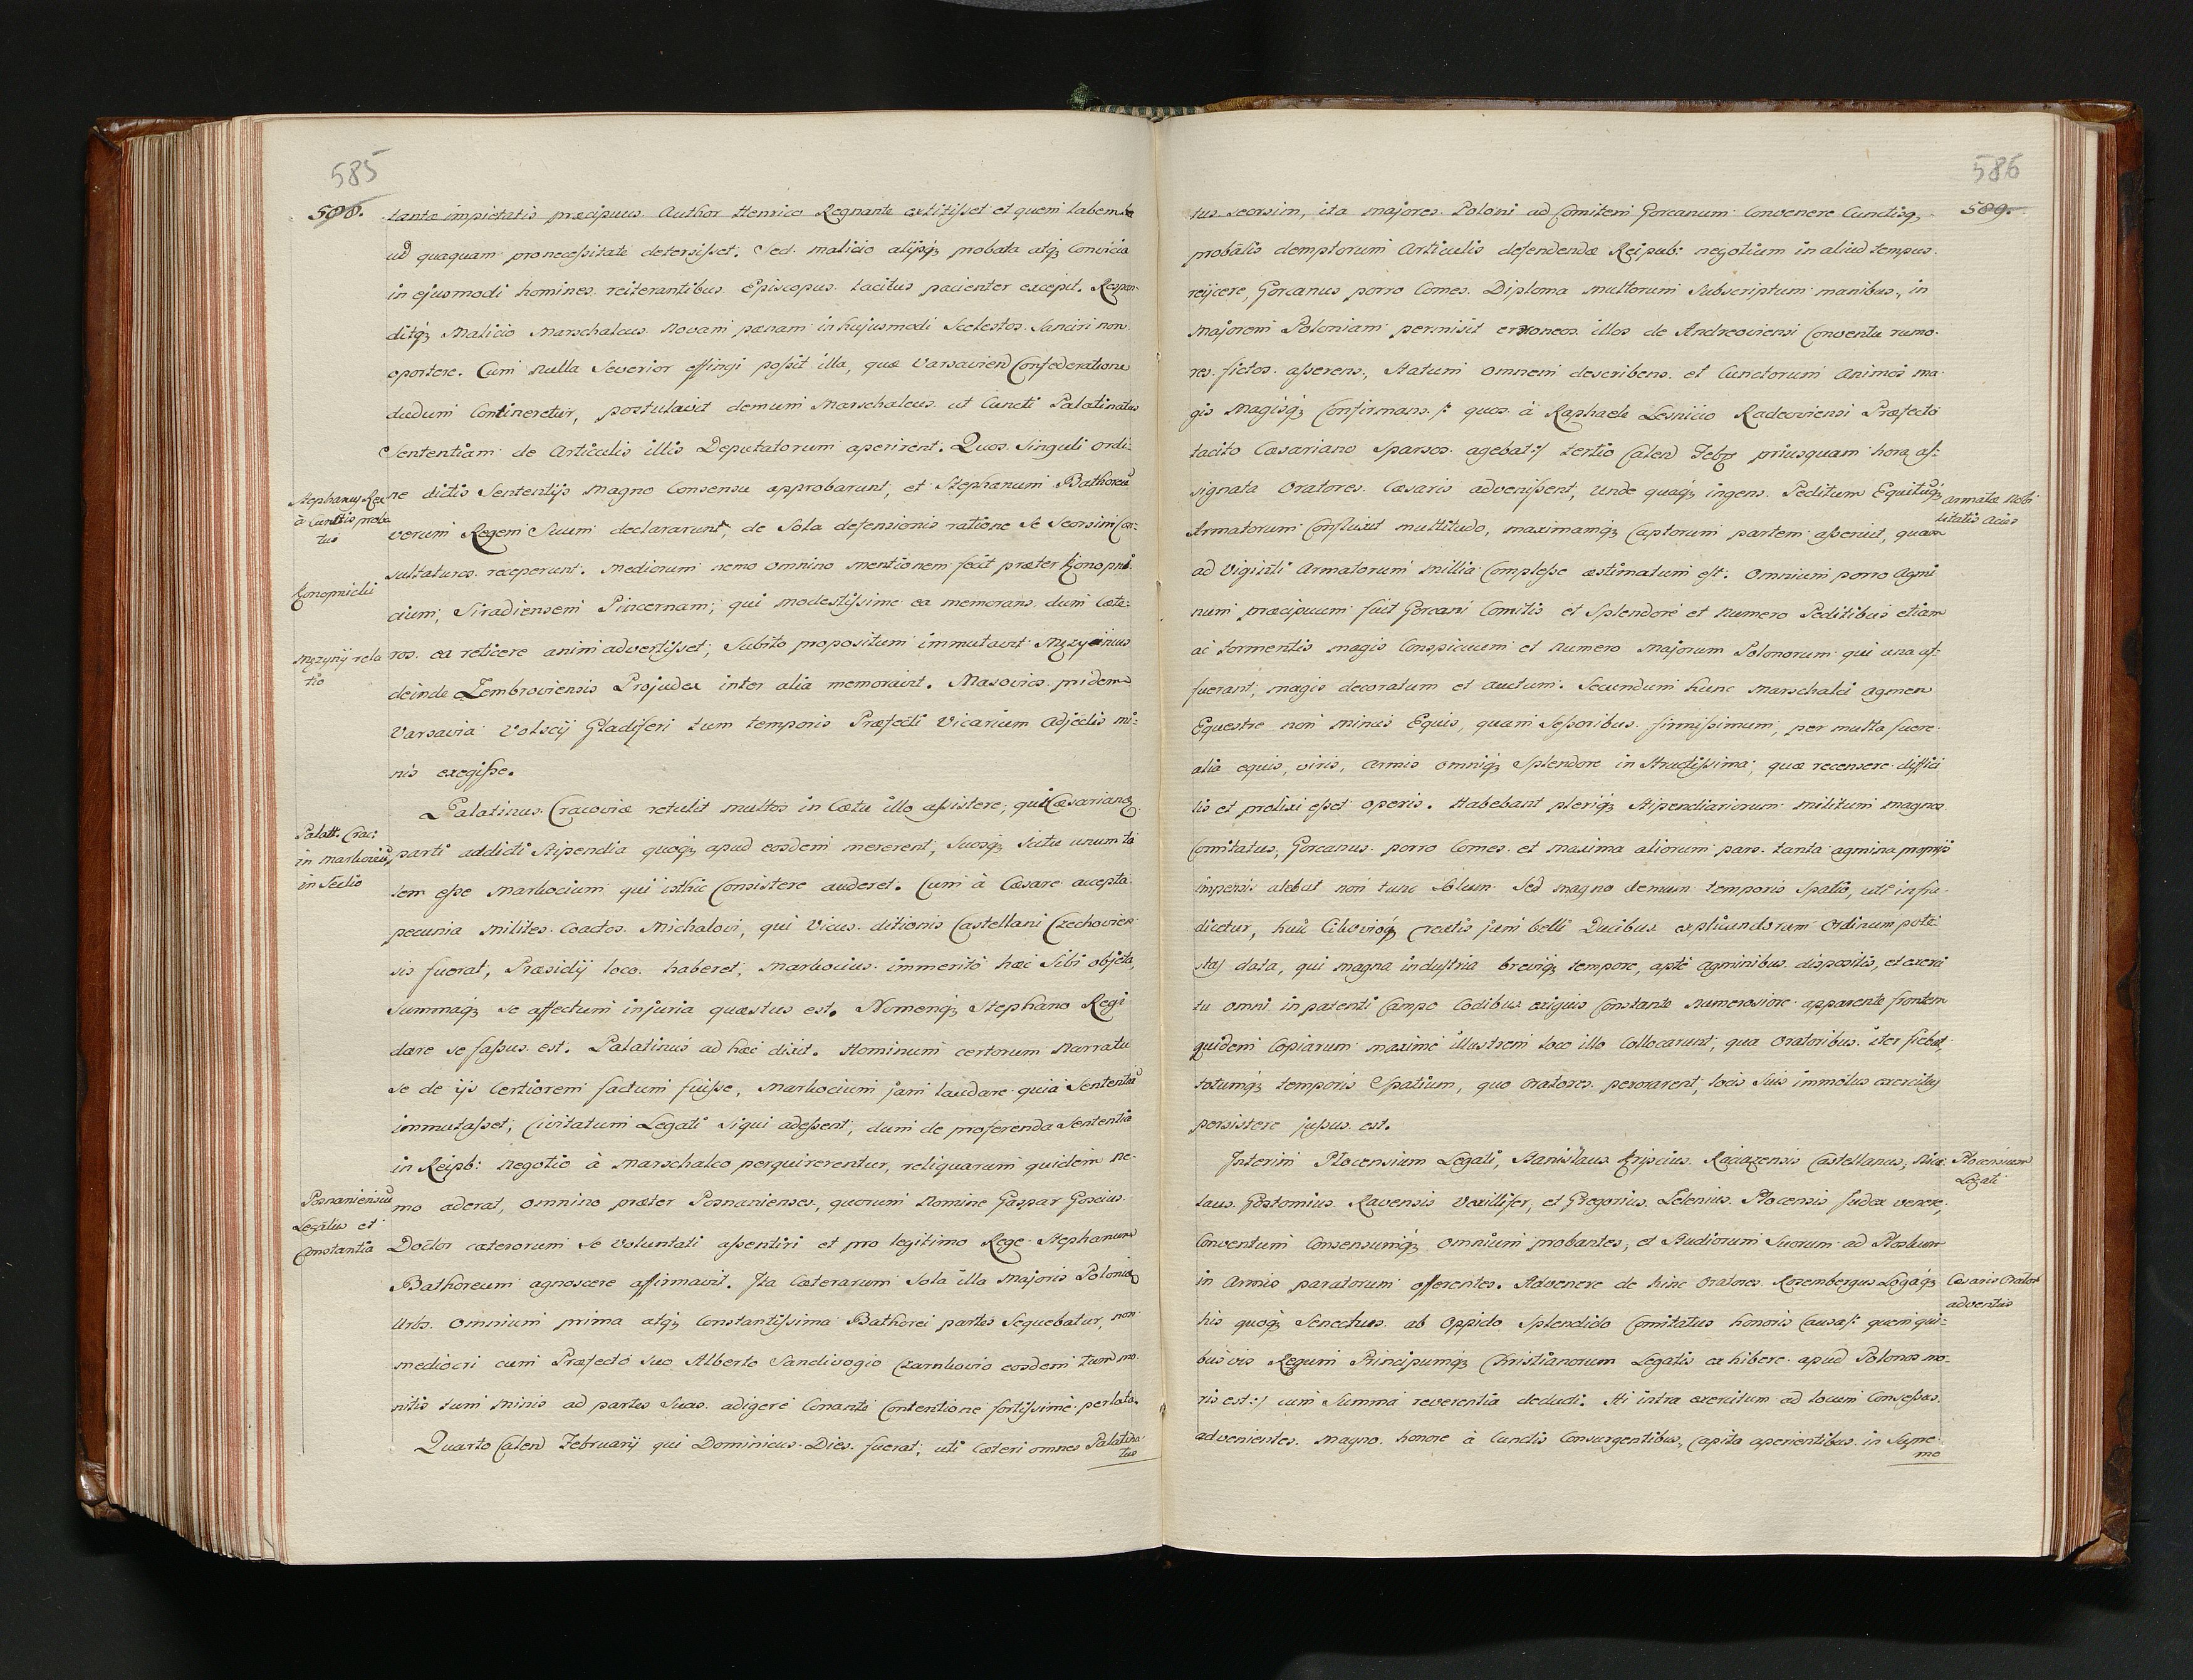 585
588.
tantæ impietatis præcipuus Author Henrico Regnante extitisset et quem labem ha
ud quaquam pro necessitate detersisset. Sed malicio alijsq; probata atq; convicia
in ejusmodi homines reiterantibus Episcopus tacitus pacienter excepit. Respon-
ditq; Malicio Marschalcus Novam pænam in hujusmodi Scelestos Sanciri non
oportere. Cum nulla Severior effingi possit illa, quæ Varsavien Confederatione
dudum Contineretur, postulavit demum Marschalcus ut Cuncti Palatinatus
Sententiam de Articulis illis Deputatorum aperirent. Quos Singuli ordi-
Stephanus Rex
à Cunctis proba
tus
ne dictis Sententijs magno Consensu approbarunt, et Stephanum Bathoreū
verum Regem Suum declararunt, de Sola defensionis ratione Se Seorsim Con-
sultaturos receperunt. Mediorum nemo omnino mentionem fecit præter Konopni
Konopnicki
cium, Siradiensem Pincernam; qui modestissime ea memorans dum Cæte-
ros ea reticere animadvertisset; Subito propositum immutavit Mzzyinius
Mzzynij rela
tio
deinde Zembroviensis Projudex inter alia memoravit. Masovios pridem
Varsavia Volscij Gladiferi tum temporis Præfecti Vicarium adjectis mi-
nis exegisse.
Palatinus Cracoviæ retulit multos in Cætu illo assistere; qui Cæsarianæ
Palatt. Crac:
in markociū
in Vectio
parti addicti Stipendia quoq; apud eosdem mererent, Suosq; Scitu unum ta
lem esse Markocium qui isthic Consistere auderet. Cum à Cæsare accepta
pecunia Milites Coactos Michalovi, qui Vicus ditionis Castellani Czechovien
sis fuerat, Præsidij loco haberet; Markocius immerito hæc Sibi objecta,
Summaq; se affectum injuria quæstus est. Nomenq; Stephano Regi
dare se fassus est. Palatinus ad hæc dixit. Hominum certorum Narratu
se de ijs Certiorem factum fuisse, Markocium jam laudare quia Sententiā
immutasset; Civitatum Legati siqui adessent, dum de proferenda Sententia
in Reipb: negotio à Marschalco perquirerentur, reliquarum quidem ne-
Posnaniensiū
Legatus et
Constantia
mo aderat, omnino præter Posnanienses, quorum Nomine Gaspar Goscius
Doctor cæterorum Se Voluntati assentiri et pro legitimo Rege Stephanum
Bathoreum agnoscere affirmavit. Ita Cæterarum Sola illa Majoris Poloniæ
Urbs Omnium prima atq; Constantissima Bathorei partes Sequebatur, non
mediocri cum Præfecto suo Alberto Sandivogio Czarnkovio eosdem tum mo
nitis tum Minis ad partes Suas adigere Conante Contentione fortissime perlata.
Quarto Calend Februarij qui Dominicus Dies fuerat; uti Cæteri omnes Palatina
tus
586
589.
tus seorsim, ita majores Poloni ad Comitem Gorcanum Convenere Cunctisq;
probatis demptorum Articulis defendendæ Reipub: negotium in aliud tempus
reijcere, Gorcanus porro Comes Diploma multorum Subscriptum manibus, in
majorem Poloniam permisit erroneos illos de Andreoviensi Conventu rumo-
res fictos asserens, Statum omnem describens et Cunctorum animos ma-
gis magisq; Confirmans /: quos à Raphaele Lesnicio Radeoviensi Præfecto
tacito Cæsariano Sparsos agebat :/ tertio Calend Febry priusquam hora as-
signata Oratores Cæsaris advenissent, unde quaq; ingens Peditum Equitūq;
Armatæ Nobi
litatis Acies
Armatorum Confluxit multitudo, maximamq; Captorum partem assenuit, quam
ad Viginti Armatorum Millia Complesse æstimatum est. Omnium porro Agmi
num præcipuum fuit Gorcani Comitis et Splendore et Numero Peditibus etiam
ac tormentis magis Conspicuum et Numero Majorum Polonorum qui una af-
fuerant, magis decoratum et auctum. Secundum hunc Marschalci agmen
Equestre non minus Equis, quam Sessoribus firmissimum, per multa fuere
alia equis, viris, armis omniq; Splendore instructissima; quæ recensere diffici
lis et prolixi esset operis. Habebant pleriq; Stipendiariorum Militum magnos
Comitatus, Gorcanus porro Comes et maxima aliorum pars tanta agmina proprijs
impensis alebat non tunc Solum Sed magno demum temporis Spatio, uti infra
dicetur, huic Creatis jam belli Ducibus explicandorum Ordinum pote-
stas data, qui magna industria breviq; tempore, apte agminibus dispositis, et exerci
tu omni in patenti Campo Codibus exiguis Constante Numerosiore apparente frontem
quidem Copiarum maxime illustrem loco illo Collocarunt, qua Oratoribus iter fiebat,
totumq; temporis Spatium, quo Oratores perorarent, locis Suis immotus exercitus
persistere jussus est.
Interim Plocensium Legati, Stanislaus Kriscius Raciazensis Castellanus, Nico-
Plocensium
Legati
laus Gostomius Ravensis Vexillifer, et Gregorius Zelenius Plocensis Judex venere,
Conventum Consensumq; omnium probantes, et Studiorum Suorum ad
in Armis paratorum offerentes. Advenere de hinc Oratores Rosembergus Logaq;
Cæsaris Orator
adventus
his quoq; Senectus ab Oppido Splendido Comitatus honoris Causa /: quem qui-
busvis Regum Principumq; Christianorum Legatis exhibere apud Polonos mo-
ris est :/ cum Summa reverentia deducti. Hi intra exercitum ad locum Consessus
advenientes magno honore à Cunctis Consurgentibus, Capita aperientibus in Supre-
mo